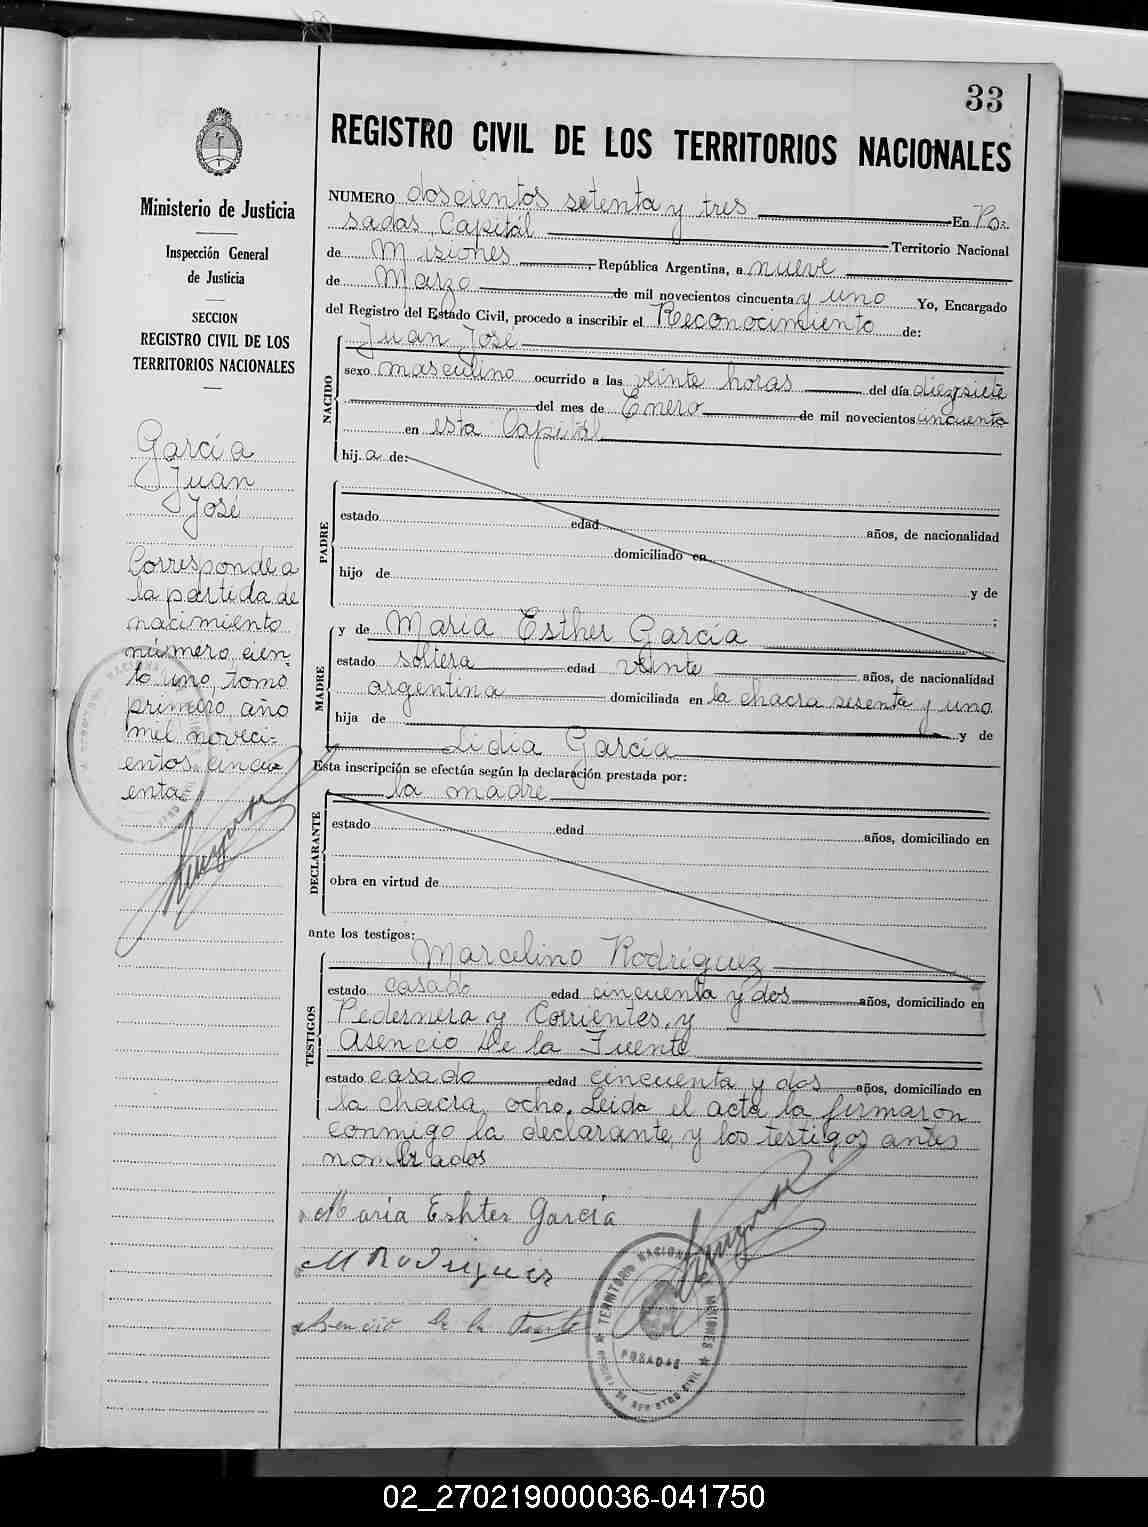 33
REGISTRO CIVIL DE LOS TERRITORIOS NACIONALES
Ministerio de Justicia
Inspección General
de Justicia
SECCION
REGISTRO CIVIL DE LOS
TERRITORIOS NACIONALES
García
Juan
José
Corresponde a
la partida de
nacimiento
número cien
to uno, tomo
primero año
mil noveci-
entos cincu
enta
NUMERO doscientos setenta y tres En Po-
sadas, Capital Territorio Nacional
de Misiones, República Argentina, a nueve
de Marzo de mil novecientos cincuenta y uno Yo, Encargado
del Registro del Estado Civil, procedo a inscribir el Reconocimiento de:
NACIDO
Juan José
sexo masculino ocurrido a las veinte horas del día diez y siete
del mes de Enero de mil novecientos cincuenta
en esta Capital
hij a de:
PADRE
estado edad años, de nacionalidad
domiciliado en
hijo de y de
;
MADRE
y de María Esther García
estado soltera edad veinte años, de nacionalidad
argentina domiciliada en la chacra sesenta y uno
hija de y de
Lidia García
Esta inscripción se efectúa según la declaración prestada por:
la madre
DECLARANTE
estado edad años, domiciliado en
obra en virtud de
ante los testigos:
TESTIGOS
Marcelino Rodríguez
estado casado edad cincuenta y dos años, domiciliado en
Pedernera y Corrientes, y
Asencio De la Fuente
estado casado edad cincuenta y dos años, domiciliado en
la chacra ocho. Leida el acta la firmaron
conmigo la declarante, y los testigos antes
nombrados
Maria Eshter Garcia
M Rodriguez
Asencio De la Fuente
TERRITORIO NACIONAL DE MISIONES
POSADAS
02_270219000036-041750